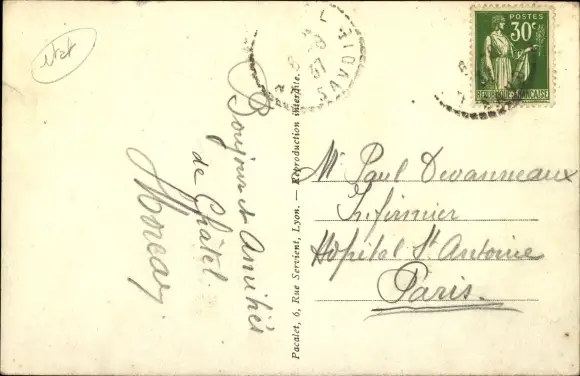 Bonjour et Amitiés
de Châtel.
Moreau
Pacalet, 6, Rue Servient, Lyon. — Reproduction interdite.
POSTES
30c
REPUBLIQUE FRANÇAISE
37
SAVOIE
Mr Paul Devanneaux
Infirmier
Hôpital St Antoine
Paris.